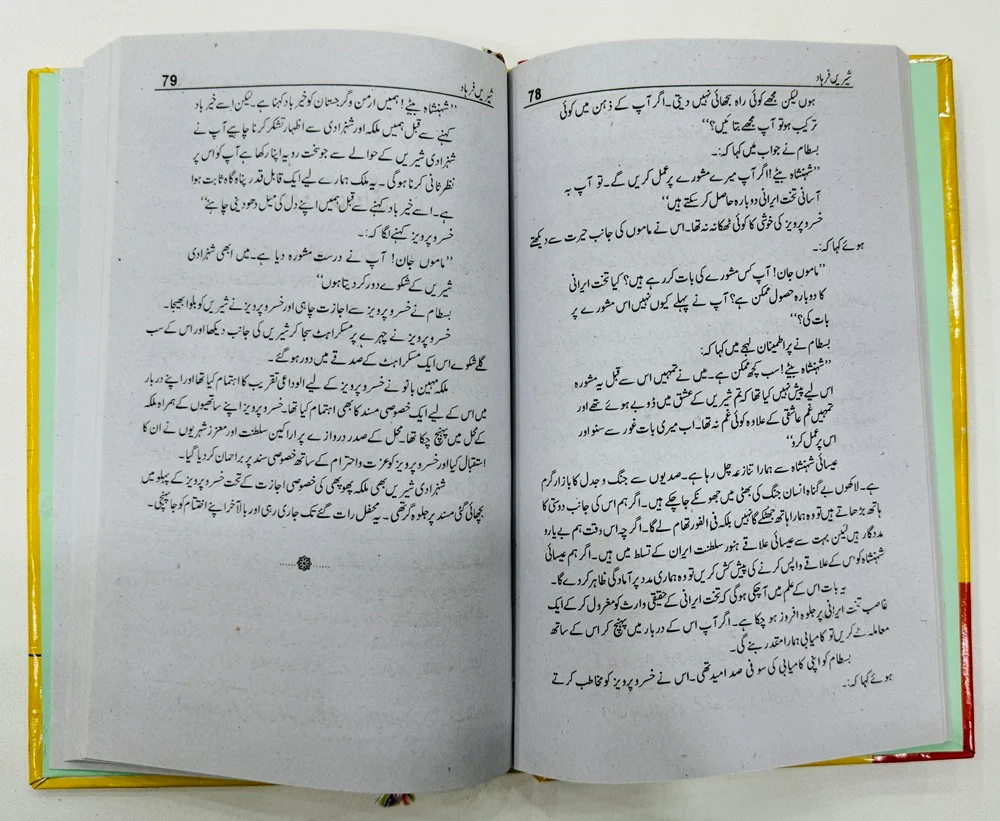 شیریں فرہاد
78
ہوں لیکن مجھے کوئی راہ سجھائی نہیں دیتی۔ اگر آپ کے ذہن میں کوئی
ترکیب ہو تو آپ مجھے بتائیں؟‘‘
بسطام نے جواب میں کہا کہ:۔
’’شہنشاہ بیٹے! اگر آپ میرے مشورے پر عمل کریں گے۔ تو آپ بہ
آسانی تخت ایرانی دوبارہ حاصل کر سکتے ہیں‘‘
خسرو پرویز کی خوشی کا کوئی ٹھکانہ نہ تھا۔ اس نے ماموں کی جانب حیرت سے دیکھتے
ہوئے کہا کہ:۔
’’ماموں جان! آپ کس مشورے کی بات کر رہے ہیں؟ کیا تخت ایرانی
کا دوبارہ حصول ممکن ہے؟ آپ نے پہلے کیوں نہیں اس مشورے پر
بات کی؟‘‘
بسطام نے پر اطمینان لہجے میں کہا کہ:
’’شہنشاہ بیٹے! سب کچھ ممکن ہے۔ میں نے تمہیں اس سے قبل یہ مشورہ
اس لیے پیش نہیں کیا تھا کہ تم شیریں کے عشق میں ڈوبے ہوئے تھے اور
تمہیں غم عاشقی کے علاوہ کوئی غم نہ تھا۔ اب میری بات غور سے سنو اور
اس پر عمل کرو‘‘
عیسائی شہنشاہ سے ہمارا تنازعہ چل رہا ہے۔ صدیوں سے جنگ و جدل کا بازار گرم
ہے۔ لاکھوں بے گناہ انسان جنگ کی بھٹی میں جھونکے جا چکے ہیں۔ اگر ہم اس کی جانب دوستی کا
ہاتھ بڑھاتے ہیں تو وہ ہمارا ہاتھ جھٹکے گا نہیں بلکہ فی الفور تھام لے گا۔ اگر چہ اس وقت ہم بے یارو
مددگار ہیں لیکن بہت سے عیسائی علاقے ہنوز سلطنت ایران کے تسلط میں ہیں۔ اگر ہم عیسائی
شہنشاہ کو اس کے علاقے واپس کرنے کی پیش کش کریں تو وہ ہماری مدد پر آمادگی ظاہر کر دے گا۔
یہ بات اس کے علم میں آ چکی ہو گی کہ تخت ایرانی کے حقیقی وارث کو مغرول کر کے ایک
غاصب تخت ایرانی پر جلوہ افروز ہو چکا ہے۔ اگر آپ اس کے دربار میں پہنچ کر اس کے ساتھ
معاملہ طے کریں تو کامیابی ہمارا مقدر بنے گی۔
بسطام کو اپنی کامیابی کی سو فی صد امید تھی۔ اس نے خسرو پرویز کو مخاطب کرتے
ہوئے کہا کہ:۔
شیریں فرہاد
79
’’شہنشاہ بیٹے! ہمیں ارمن و گرجستان کو خیر باد کہنا ہے۔ لیکن اسے خیر باد
کہنے سے قبل ہمیں ملکہ اور شہزادی سے اظہار تشکر کرنا چاہیے آپ نے
شہزادی شیریں کے حوالے سے جو سخت رویہ اپنا رکھا ہے آپ کو اس پر
نظر ثانی کرنا ہو گی۔ یہ ملک ہمارے لیے ایک قابل قدر پناہ گاہ ثابت ہوا
ہے۔ اسے خیر باد کہنے سے قبل ہمیں اپنے دل کی میل دھو دینی چاہئے‘‘
خسرو پرویز کہنے لگا کہ:۔
’’ماموں جان! آپ نے درست مشورہ دیا ہے۔ میں ابھی شہزادی
شیریں کے شکوے دور کر دیتا ہوں‘‘
بسطام نے خسرو پرویز سے اجازت چاہی اور خسرو پرویز نے شیریں کو بلوا بھیجا۔
خسرو پرویز نے چہرے پر مسکراہٹ سجا کر شیریں کی جانب دیکھا اور اس کے سب
گلے شکوے اس ایک مسکراہٹ کے صدقے میں دور ہو گئے۔
ملکہ مہین بانو نے خسرو پرویز کے لیے الوداعی تقریب کا اہتمام کیا تھا اور اپنے دربار
میں اس کے لیے ایک خصوصی مسند کا بھی اہتمام کیا تھا۔ خسرو پرویز اپنے ساتھیوں کے ہمراہ ملکہ
کے محل میں پہنچ چکا تھا۔ محل کے صدر دروازے پر اراکین سلطنت اور معزز شہریوں نے ان کا
استقبال کیا اور خسرو پرویز کو عزت و احترام کے ساتھ خصوصی سند پر براجمان کر دیا گیا۔
شہزادی شیریں بھی ملکہ پھوپھی کی خصوصی اجازت کے تحت خسرو پرویز کے پہلو میں
بچھائی گئی مسند پر جلوہ گر تھی۔ یہ محفل رات گئے تک جاری رہی اور بالآخر اپنے اختتام کو جا پہنچی۔